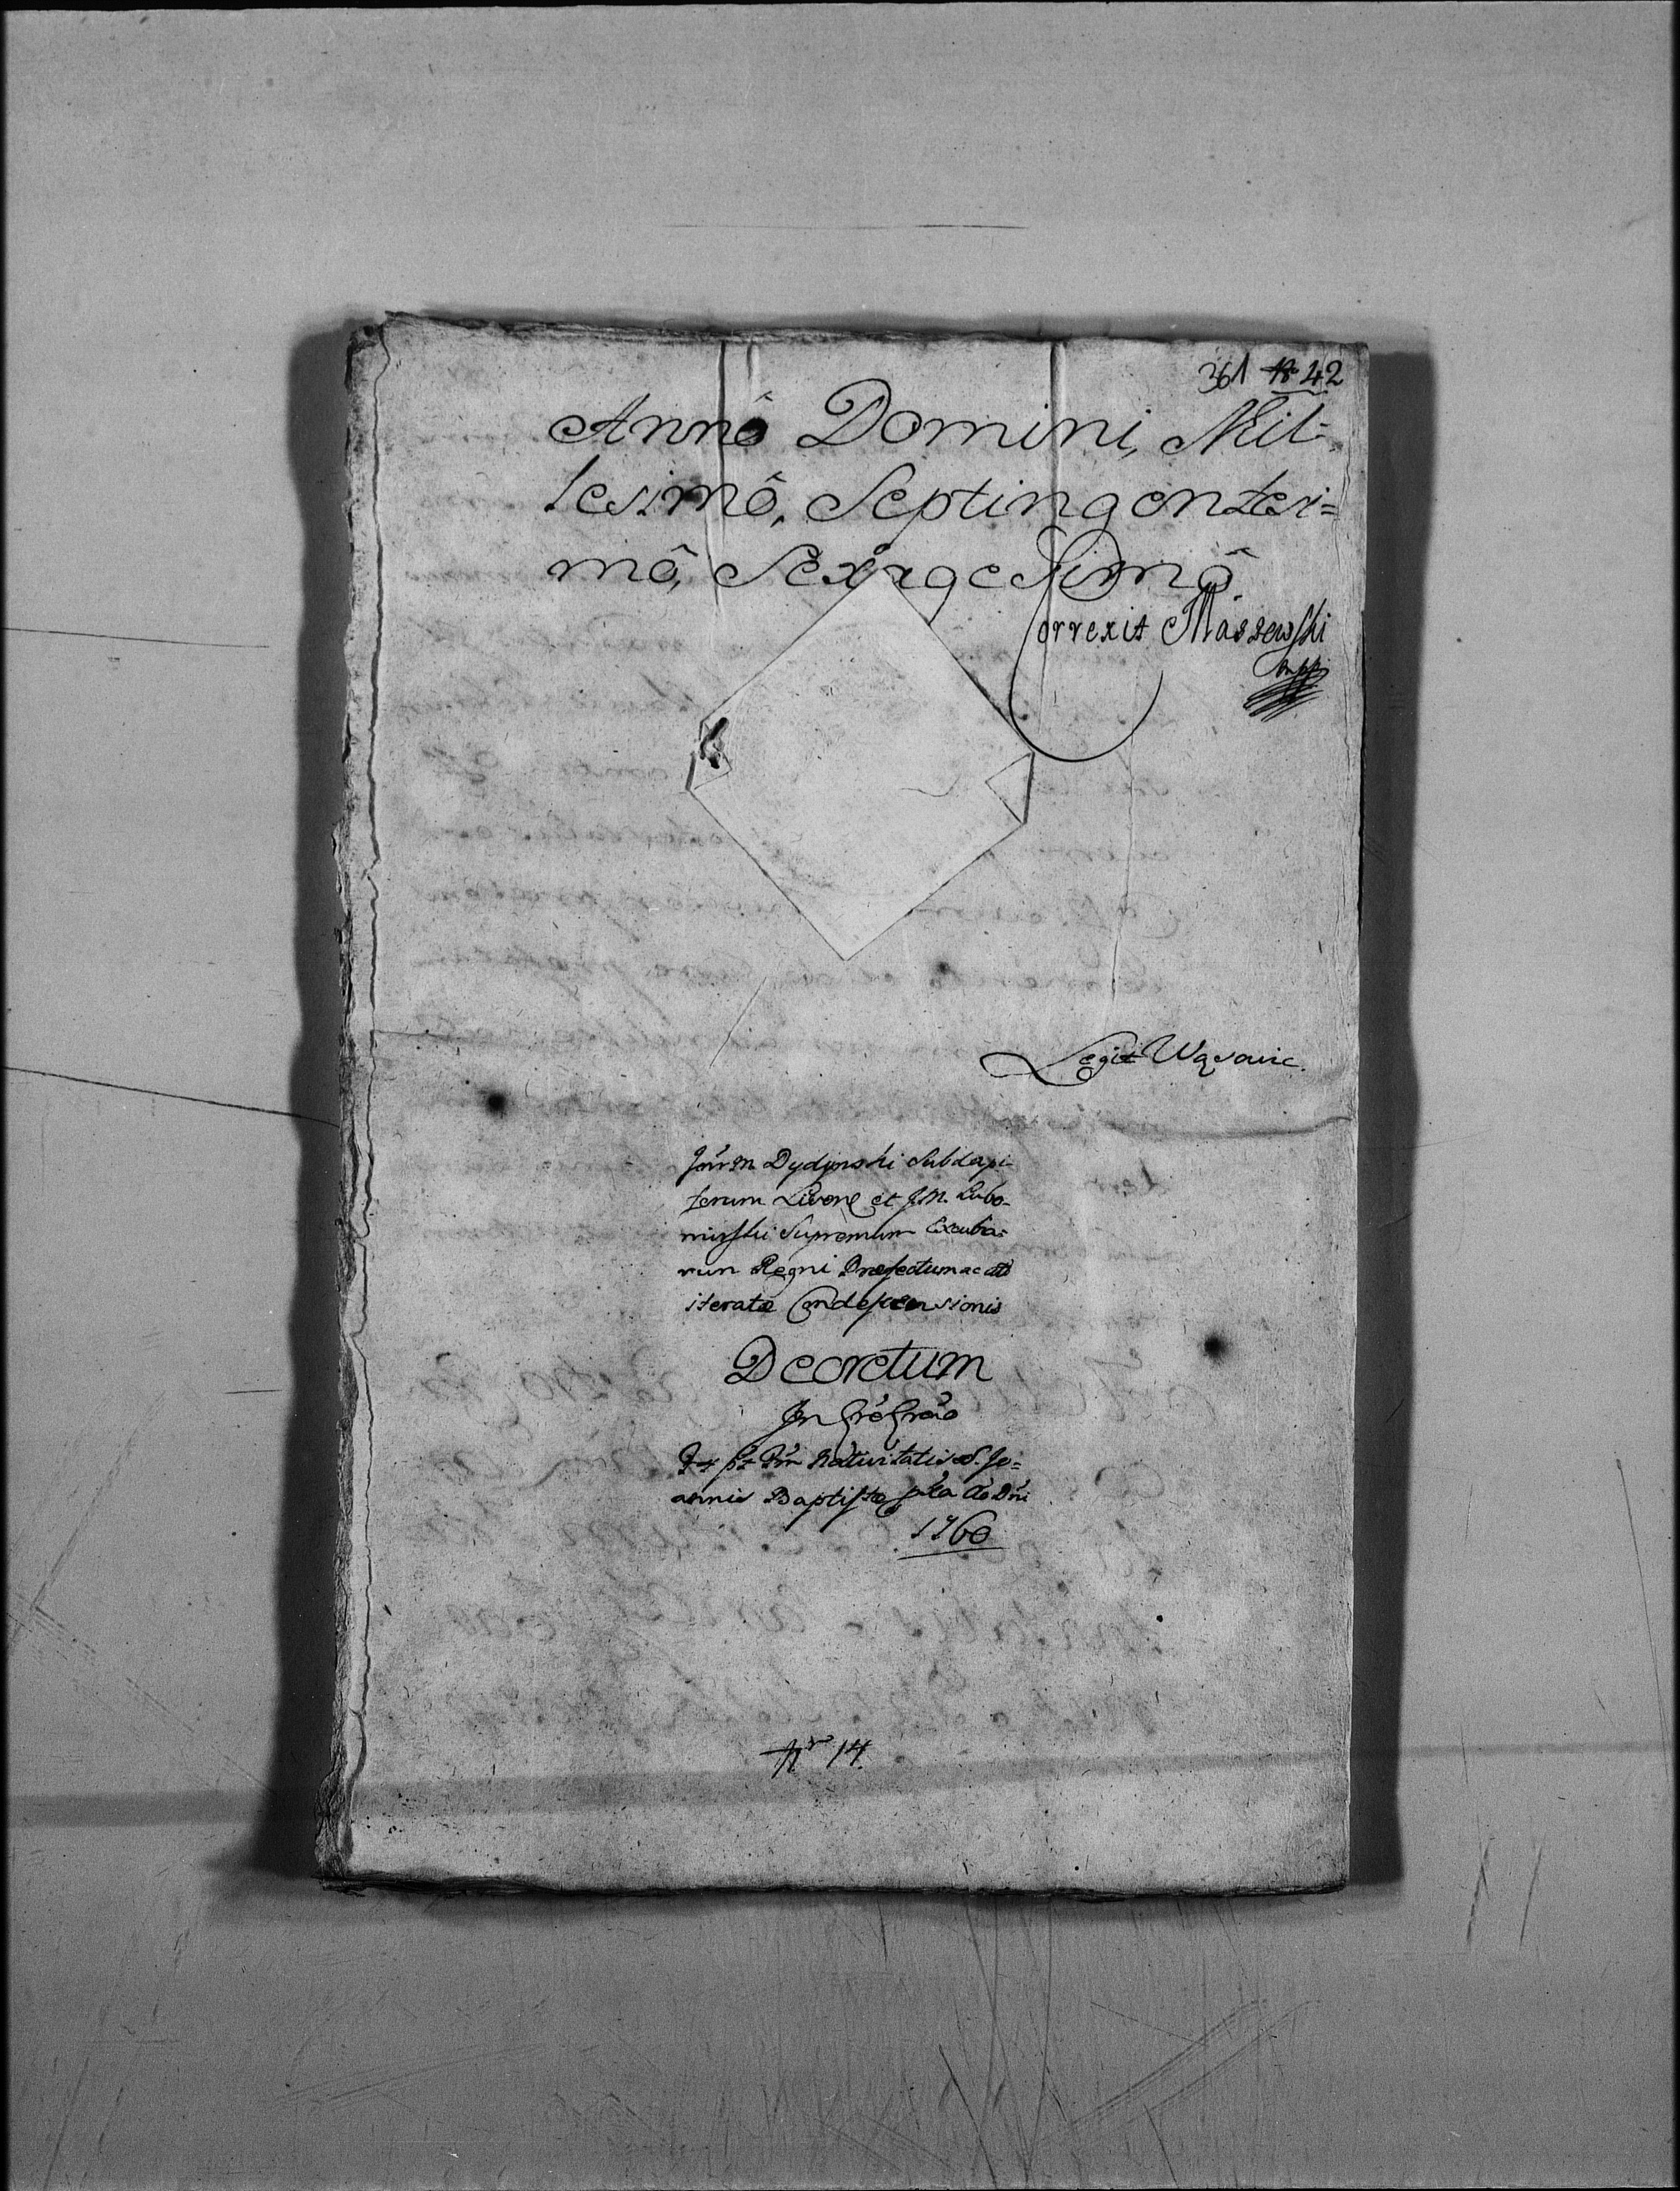 361 18 42
Annô Domini, Mil-
lesimô, Septingentesi=
mô, Sexagesimô
Correxit Maszewski
mpp
Legit Wąsowic.
Inter M Dydyński Subdapi
ferum Livone et J.M. Lubo-
mirski Supremum Excubia=
rum Regni Praefectum ac ali
iteratae Condescensionis
Decretum
In
Nativitatis S. Jo=
annis Baptistae Ao Dni
1760
Nro 14.